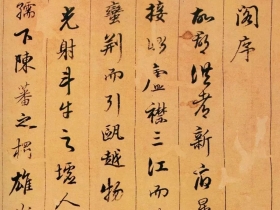 閣序
故郡洪都新府星
接衡廬襟三江而
蠻荊而引甌越物
光射斗牛之墟人
孺下陳蕃之榻雄